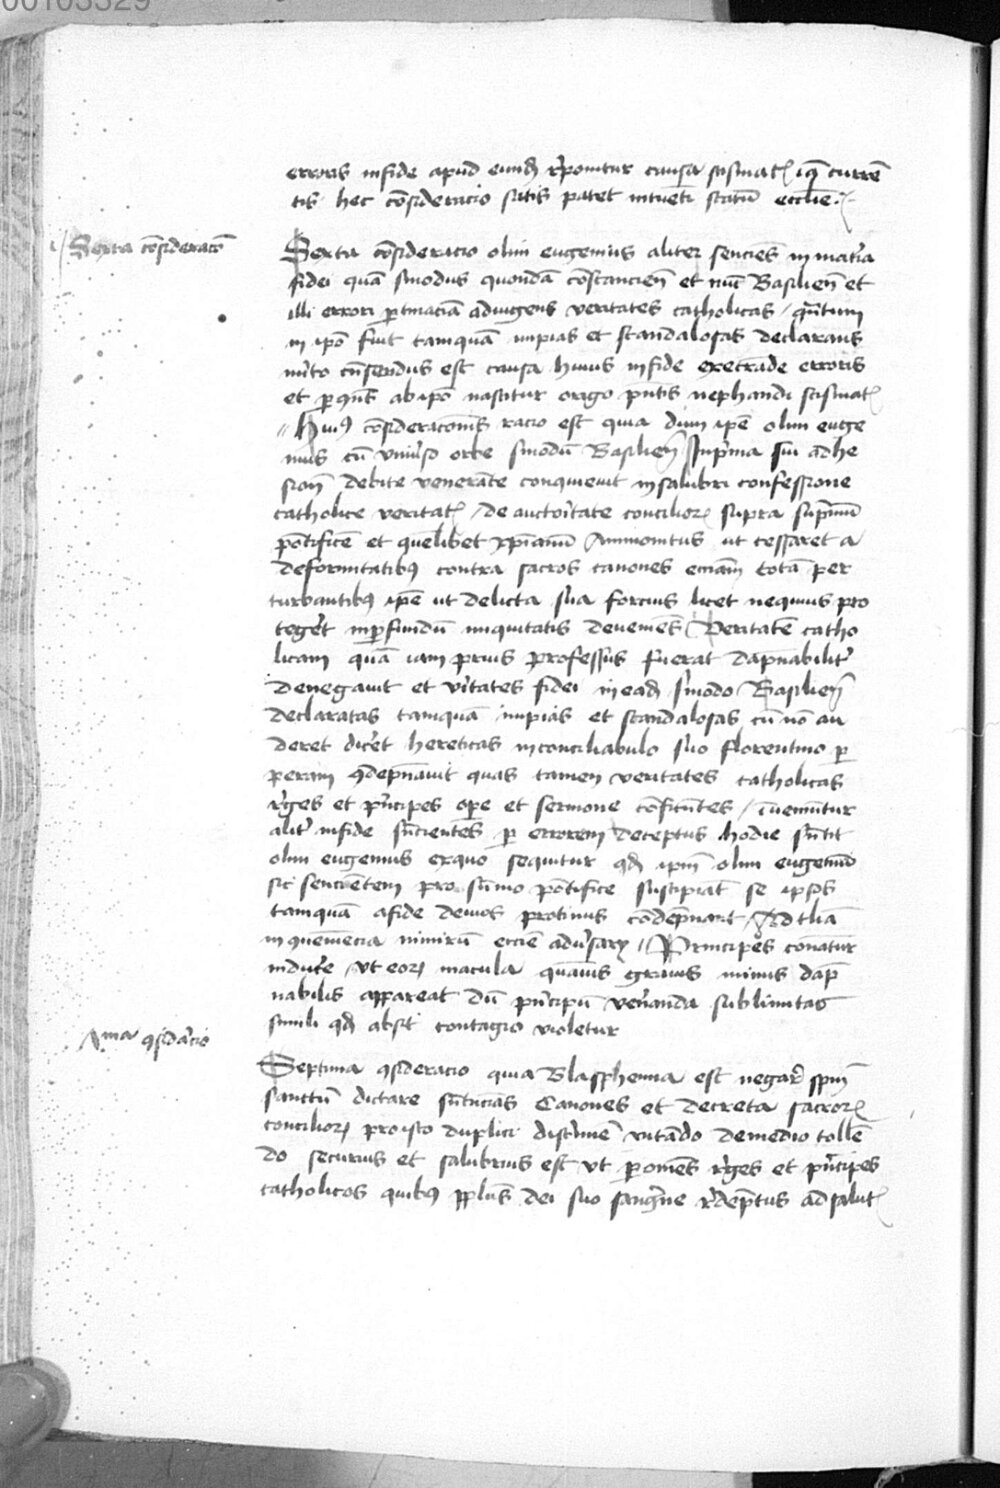 00103329
erroris in fide apud eund̄ r̄ponitur causa scismat iqꝫ curren
tis hec cōsideracio satis patet intuēti statū ecclīe
Sexta cōsideracō
Sexta cōsideracio olim eugenius aliter sencīes in mat̄ia
fidei quā sinodus quondā cōstancien̄ et nūc Basilien̄ et
illi errori p̄tinaciā adiūgens veritates catholicas / qn̄tum
in ip̄o fuit tamquā impias et scandalosas declarans
mīto cēsendus est causa huius in fide execrāde erroris
et p̄ qn̄s ab ip̄o nascitur origo p̄ntis nephandi scismat
// Huiꝰ cōsideracōnis racio est quia dum ip̄e olim euge
nius cū vniūso orbe sinodū Basilien̄ In p̄ma sui adhe
sion̄ debite venerāte conquieuit in salubri confessione
catholice veritat / de auctōitate concilior supra sup̄mū
pōtificē et quēlibet xp̄ianū Ammonitus ut cessaret a
deformitatibꝰ contra sacros canones ecc̄iam totā per
turbantibꝰ ip̄e ut delicta sua forcius licet nequius pro
teget̄ in p̄fundū iniquitatis deueniēs Veritatē catho
licam quā iam prius professus fuerat dāpnabilit̄
denegauit et v̄itates fidei in ead̄ sinodo Basilien̄
declaratas tamquā impias et scandalosas cū nō au
deret dicēt hereticas in conciliabulo suo florentino p̄
peram ꝯdēpnauit quas tamen veritates catholicas
r̄ges et p̄ncipes ope et sermone cōfitentes / īueniūtur
alit̄ in fide sn̄cientes p̄ errorem deceptus hodie sn̄tit
olim eugenius ex quo sequitur qd̄ ip̄m olim eugeniū
sic sencientem pro sūmo pōtifice suscipiāt se ip̄os
tamquā a fide deuios protinus cōdēpnant / Ad t̄lia
inquēniencia nimirū ecc̄ie adūsarij // Principes conātur
inducē / vt eor macula quāuis grauis minus dāp
nabilis appareat dū p̄ncipū ven̄anda sublimitas
simili qd̄ absit contagio violetur
7ma ꝯsid̄acio
Septima ꝯsideracio quia Blasphemia est negar̄ sp̄m
sanctū dictare sn̄tencias Canones et decreta sacror
concilior pro isto duplici discīme vitādo de medio tollē
do securius et salubrius est vt p̄ om̄es r̄ges et p̄ncipes
catholicos quibꝰ pp̄lus dei suo sanḡine r̄dēptus ad salut